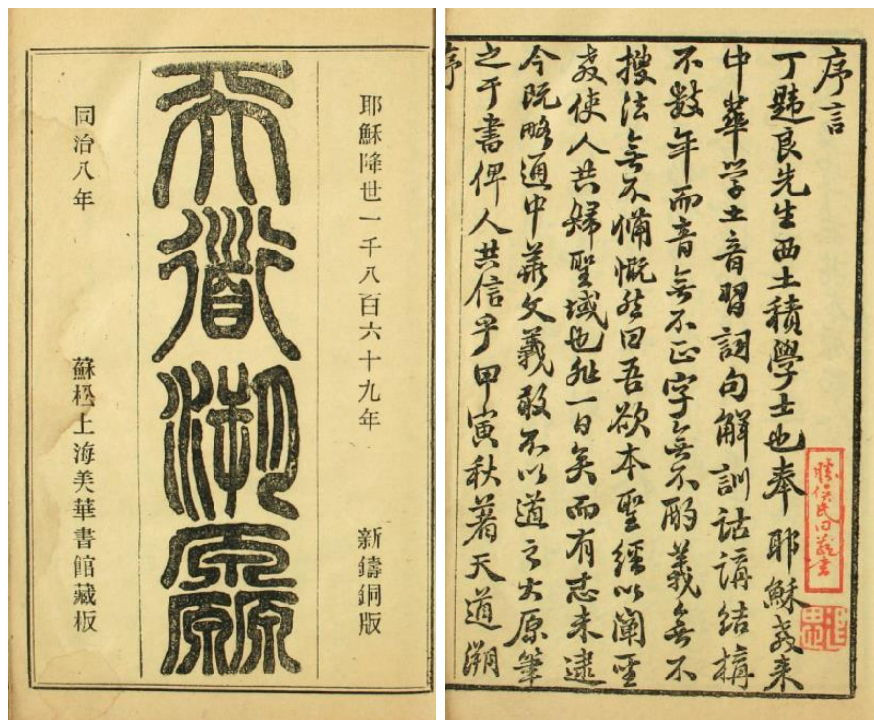 耶穌降世一千八百六十九年 新鑄銅版
天道溯厵
同治八年 蘇松上海美華書館藏板
序言
丁韙良先生西土積學士也奉耶穌教來
中華学土音習詞句解訓詁講結構
不数年而音無不正字無不酌義無不
搜法無不備慨然曰吾欲本聖經以闡聖
教使人共歸聖域也非一日矣而有志未逮
今既略通中華文義敢不以道之大原筆
之于書俾人共信乎甲寅秋著天道溯
序